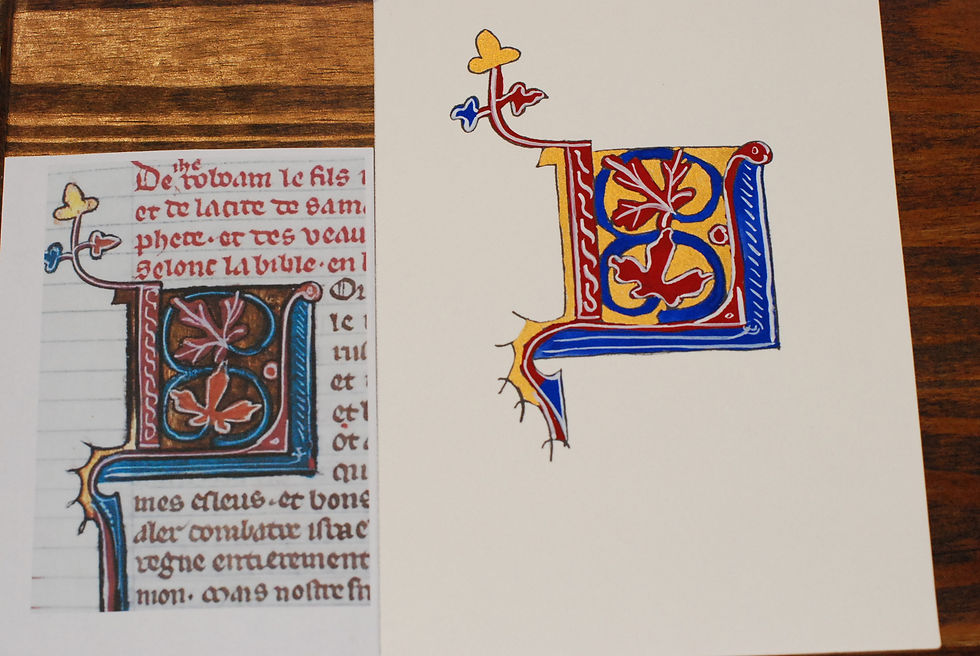 De the roboam le fils
et de lacite de sam
phete · et des veau
selonc la bible · en
Or
le
et
et
qu
mes esleus · et bons
aler combatre israe
regne entierement
mon · mais nostre